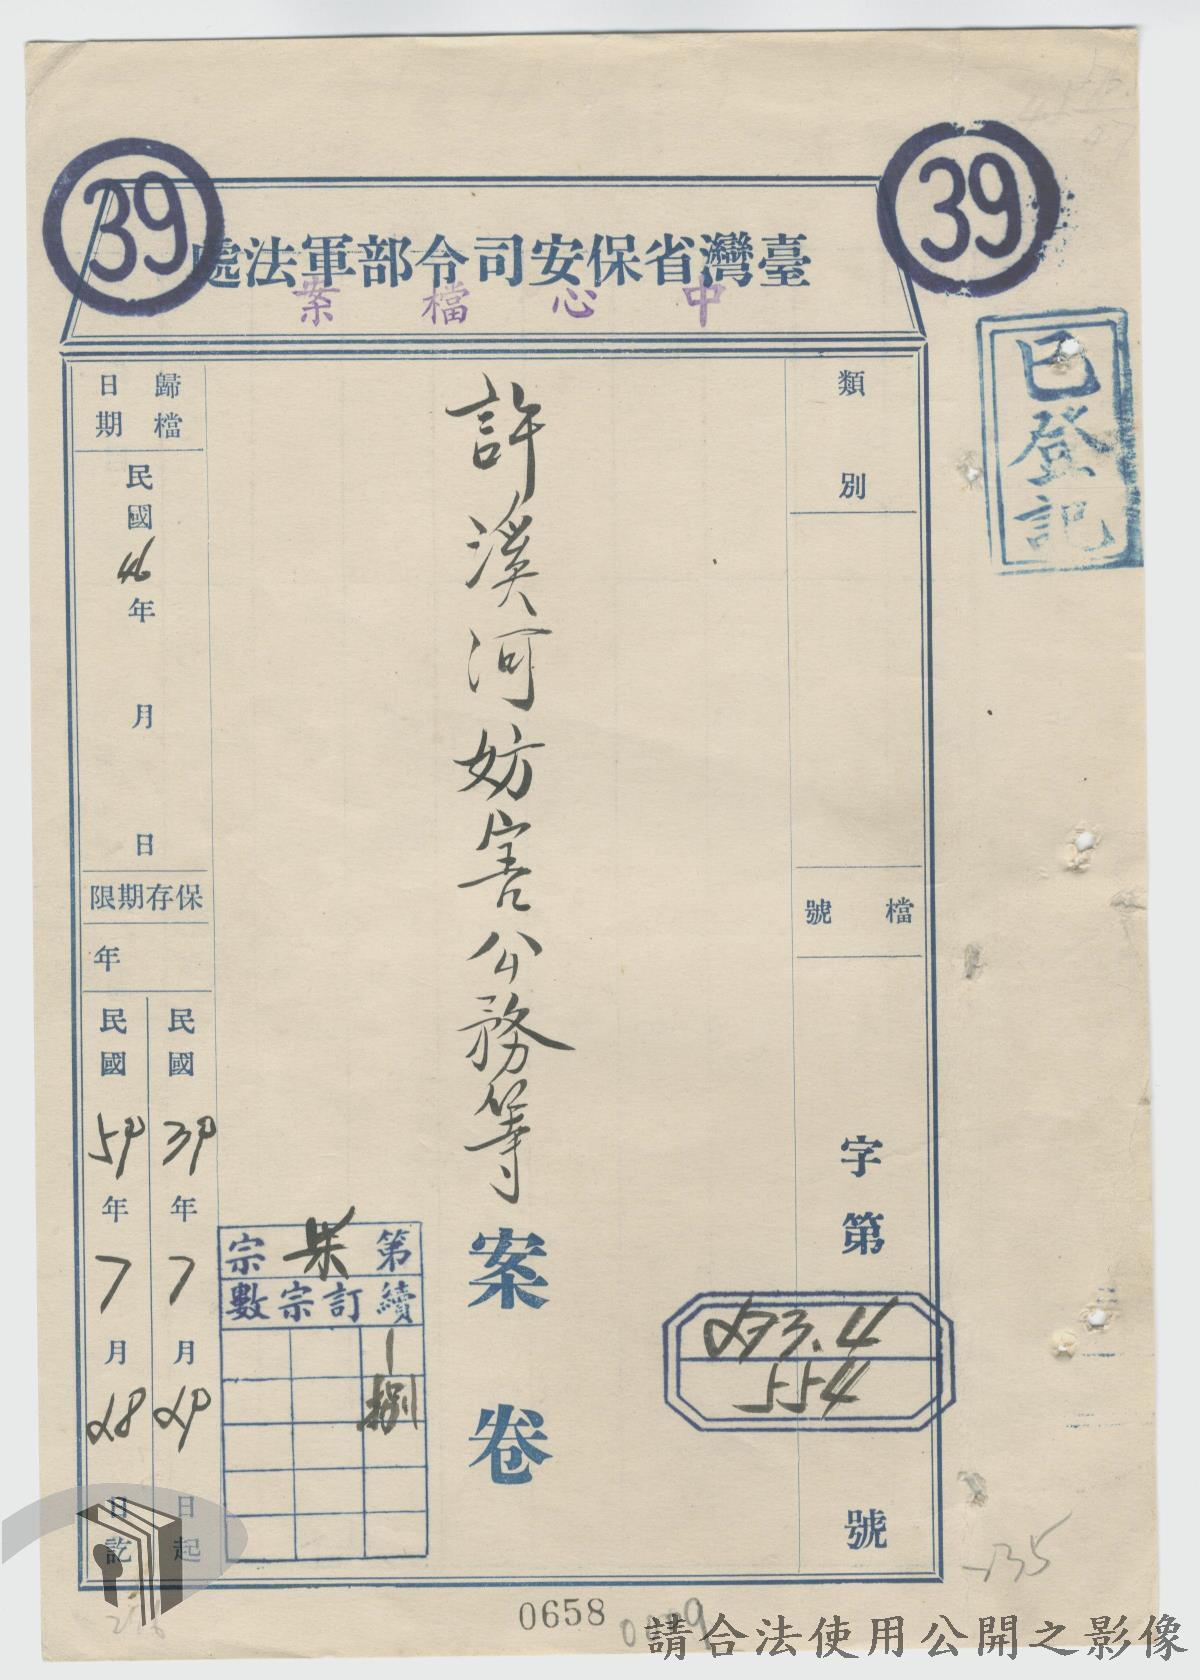 39
39
臺灣省保安司令部軍法處
中心檔案
已登記
類別
檔號
字第
273.4
554
號
許溪河妨害公務等
案卷
第柒宗
續訂宗數
捌
歸檔日期
民國46年 月 日
保存期限
年
民國39年7月29日起
民國59年7月28日訖
0658
135
請合法使用公開之影像